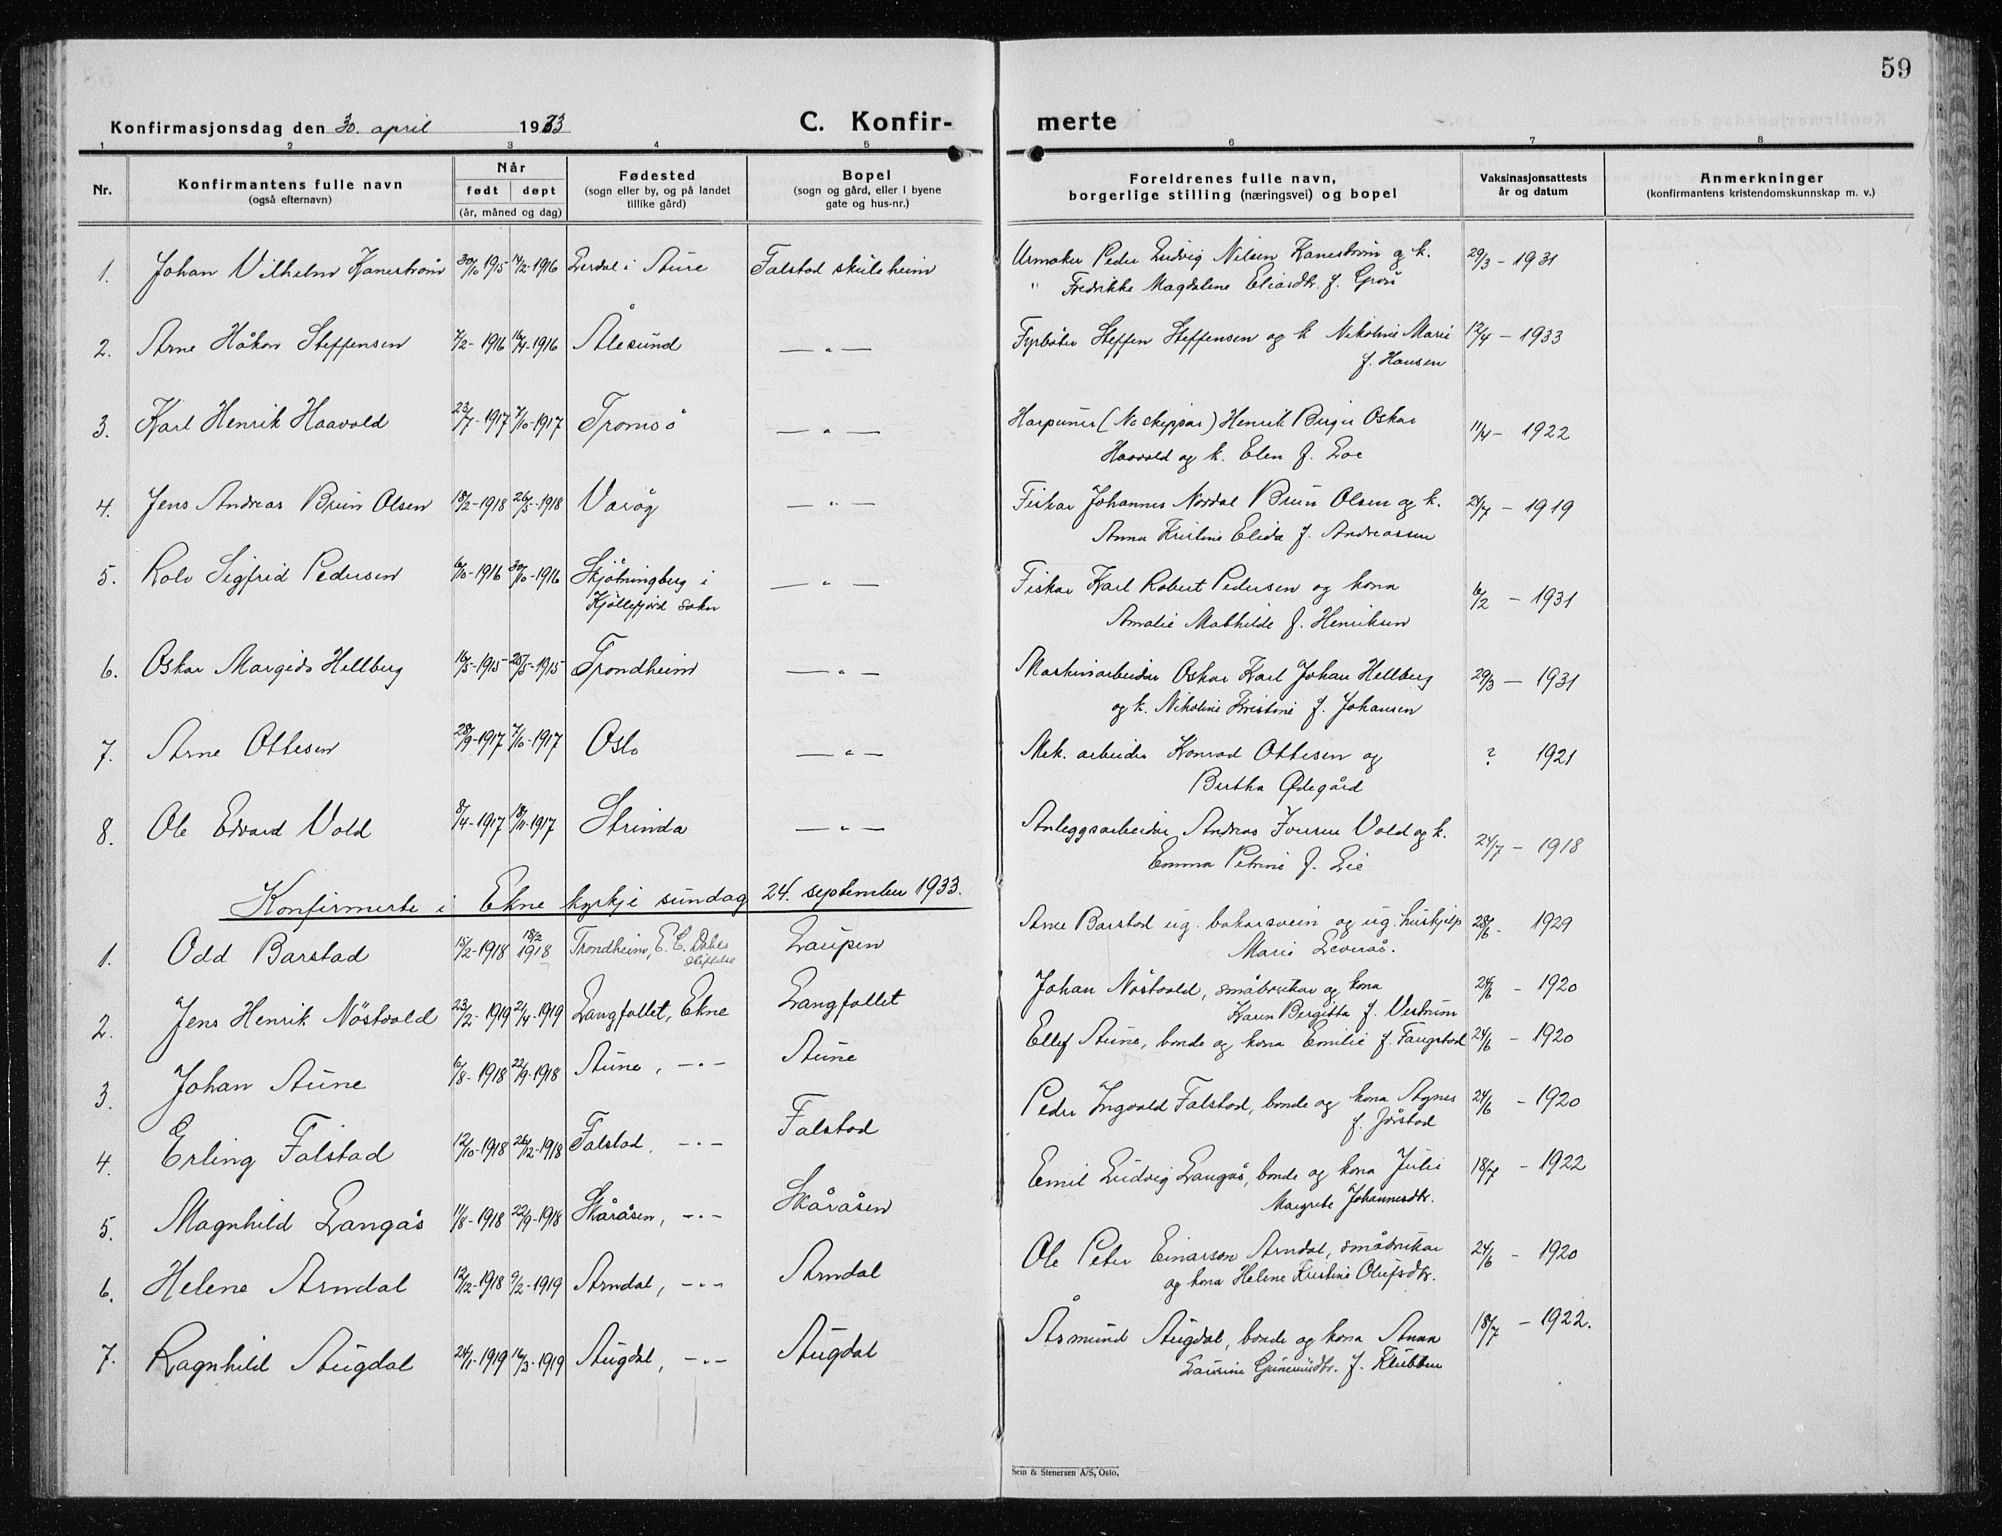 59
Konfirmasjonsdag den 30. april 1933
C. Konfirmerte
1 2 3 4 5 6 7 8
Nr.
Konfirmantens fulle navn
(også efternavn)
Når
født døpt
(år, måned og dag)
Fødested
(sogn eller by, og på landet
tillike gård)
Bopel
(sogn og gård, eller i byene
gate og hus-nr.)
Foreldrenes fulle navn,
borgerlige stilling (næringsvei) og bopel
Vaksinasjonsattests
år og datum
Anmerkninger
(konfirmantens kristendomskunnskap m. v.)
1. Johan Vilhelm Kanestrøm 30/10 1915 14/2-1916 Lerdal i Aure Falstad skuleheim Urmaker Peder Ludvig Nilsen Kanestrøm og k. 29/3 - 1931
" Fredrikke Magdalene Eliasdtr. f.
2. Arne Håkon Steffensen 7/2-1916 16/4-1916 Ålesund —"— Fyrbøter Steffen Steffensen og k Nikoline Marie 12/4 - 1933
f. Hansen
3. Karl Henrik Haavold 23/7-1917 7/10-1917 Tromsö —"— Harpuner (No skippar) Henrik Birger Oskar 11/4 - 1922
Haavold og k. Elen f. Loe
4. Jens Andreas Brun Olsen 18/2-1918 26/5-1918 Varöy —"— Fiskar Johannes Nordal Brun Olsen og k. 24/7 - 1919
Anna Kristine Elida f. Andreassen
5. Rolv Sigfrid Pedersen 6/10-1916 30/10-1916 Skjötningberg i —"— Fiskar Karl Robert Pedersen og kona 6/2 - 1931
Kjöllefjord sokn
Amalie Mathilde f. Henriksen
6. Oskar Margido Hellberg 16/5-1915 25/5-1915 Trondheim —"— Maskinarbeider Oskar Karl Johan Hellberg 29/3 - 1931
og k. Nikoline Kristine f. Johansen
7. Arne Ottesen 28/9-1917 7/10-1917 Oslo —"— Mek. arbeider Konrad Ottesen og ? 1921
Bertha Ødegård
8. Ole Edvard Vold 8/4-1917 18/11-1917 Strinda —"— Anleggsarbeider Andreas Iversen Vold og k. 24/7 - 1918
Emma Petrine f. Lie
Konfirmerte i Ekne kyrkje sundag 24. september 1933.
1. Odd Barstad 15/2-1918 18/2 1918 Trondheim, E. C. Dahls Laupen Arne Barstad ug. bakarsvein og ug. huskjelp 28/6 - 1929
stiftelse
Marie Leverås.
2. Jens Henrik Nöstvold 23/2-1919 21/4-1919 Langfallet, Ekne Langfallet Johan Nöstvold, småbrukar og kona 24/6 - 1920
Karen Bergitta f. Vestrum
3. Johan Aune 6/8-1918 22/9-1918 Aune, —"— Aune Ellef Aune, bonde og kona Emilie f. Faugstad 24/6 - 1920
4. Erling Falstad 12/10-1918 26/12-1918 Falstad, —"— Falstad Peder Ingvald Falstad, bonde og kona Agnes 24/6 - 1920
f. Jörstad
5. Magnhild Langås 11/8-1918 22/9-1918 Skåråsen, —"— Skåråsen Emil Ludvig Langås, bonde og kona Julie 18/7 - 1922
Margrete Johannesdtr.
6. Helene Arndal 12/12-1918 9/2-1919 Arndal, —"— Arndal Ole Peter Einarson Arndal, småbrukar 24/6 - 1920
og kona Helene Kristine Olufsdtr.
7. Ragnhild Augdal 24/1-1919 16/3-1919 Augdal, —"— Augdal Åsmund Augdal, bonde og kona Anna 18/7 - 1922.
Laurine f. Klubben
Sem & Stenersen A/S, Oslo.